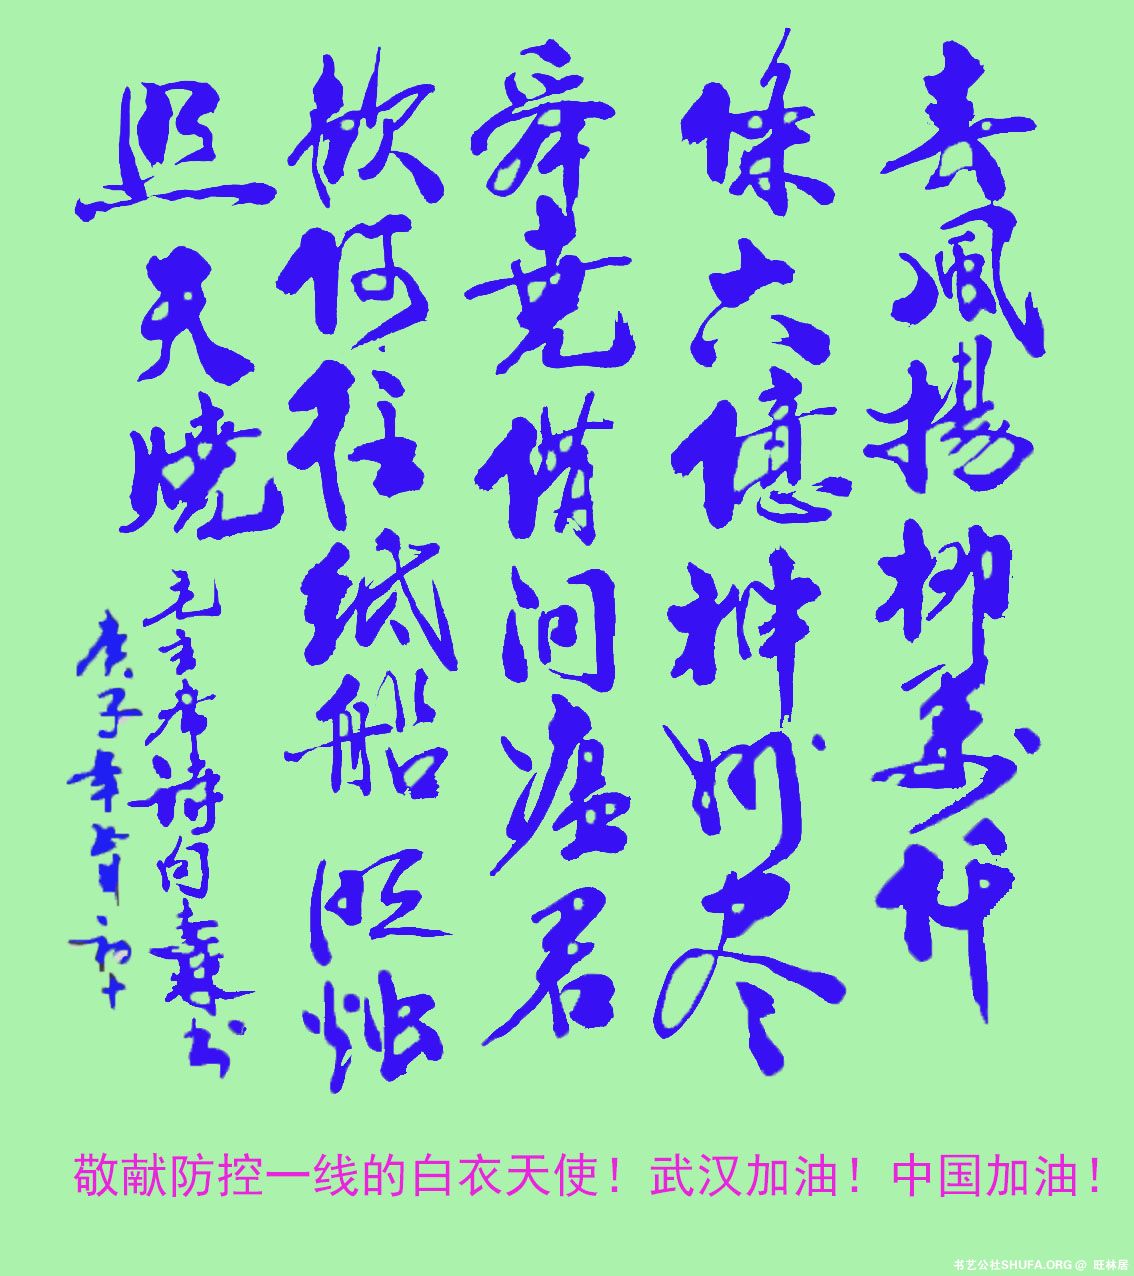 春風揚柳萬仟
條六億神州尽
舜堯借问瘟君
欲何往纸船明烛
照天燒
毛主席诗句书
庚子年正月初十
敬献防控一线的白衣天使！武汉加油！中国加油！
书艺公社SHUFA.ORG @ 旺林居